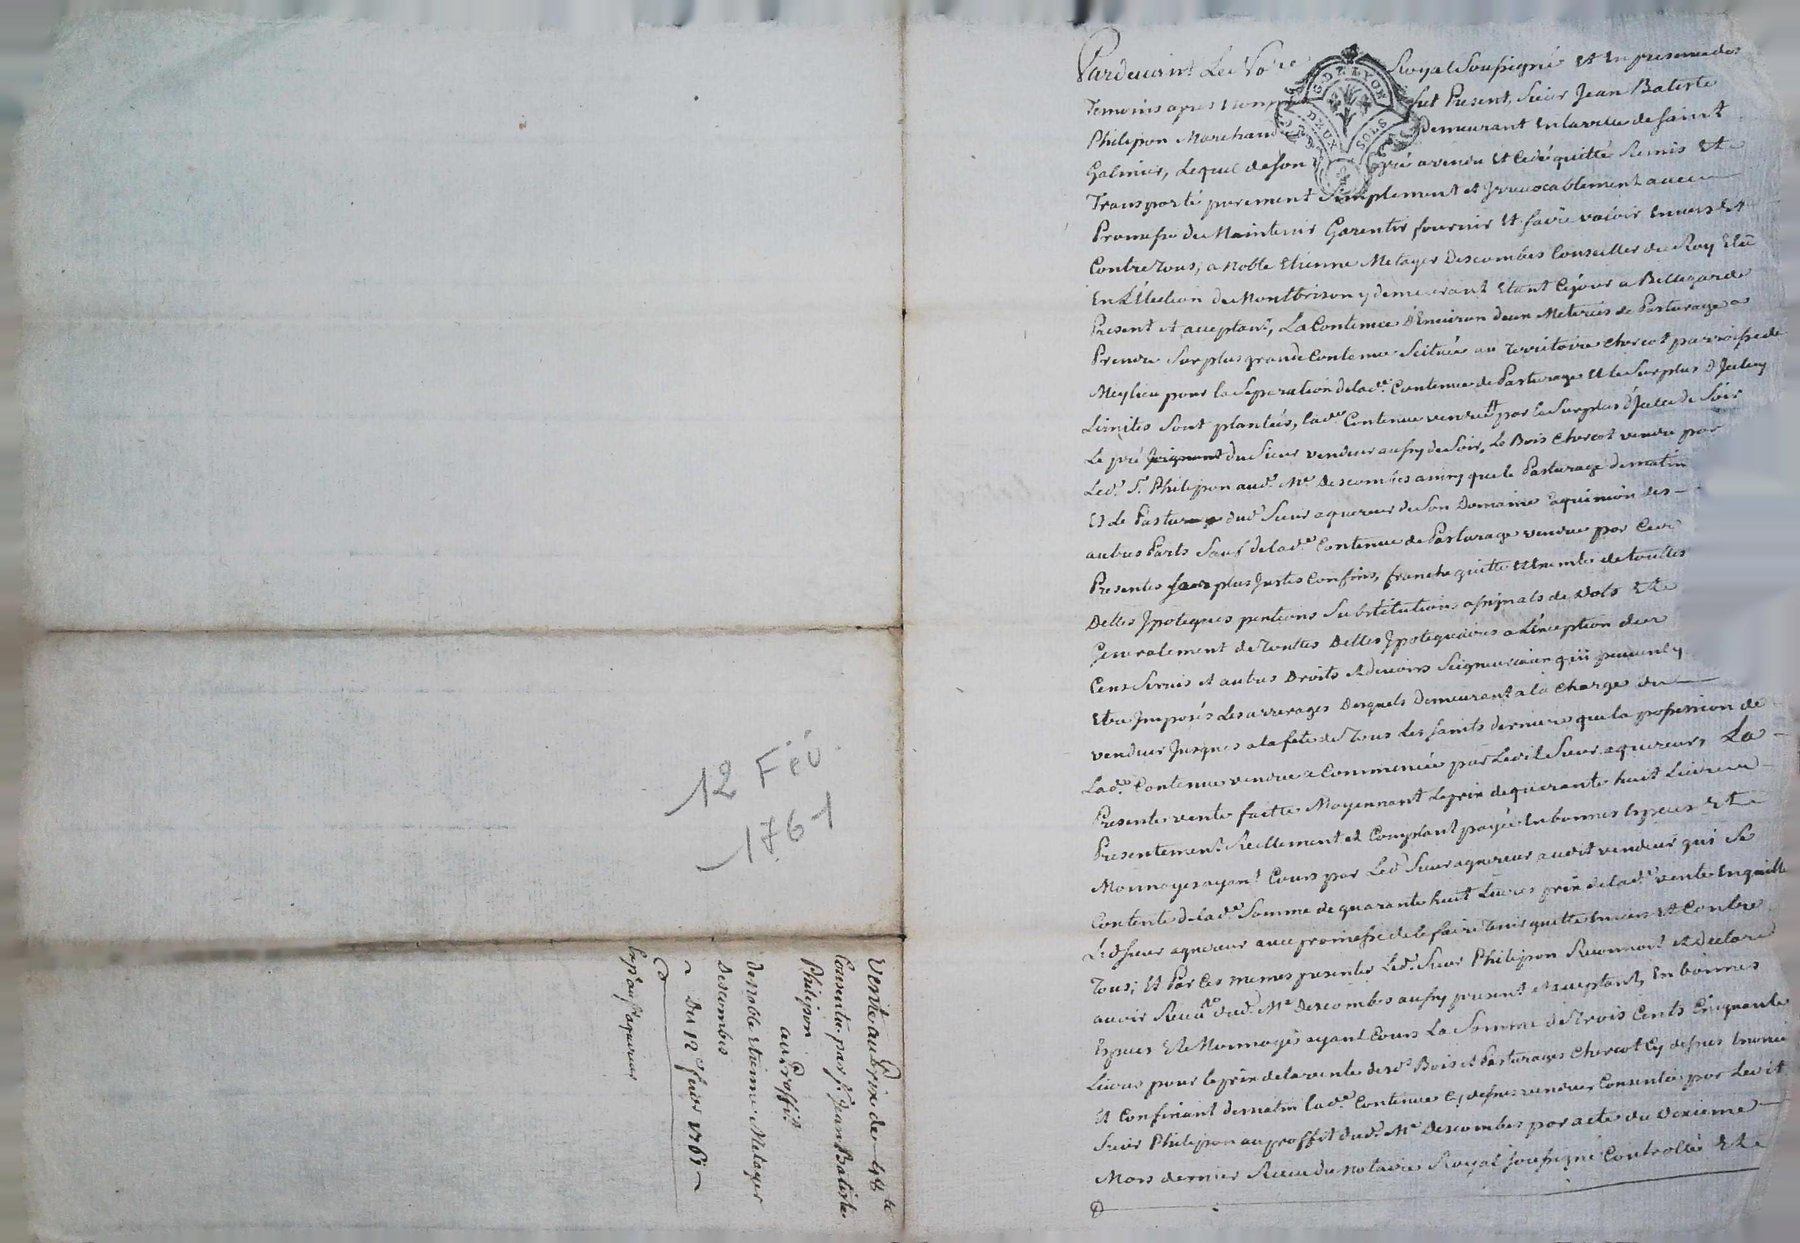 12 Fév.
1761
Vente au prix de 48 lt
Consentie par Sr Jean Batiste
Philipon
au Proffit
de noble Etienne Metayer
Descombes
Du 12e fevr 1761
Pardevant Le No.re Royal Soussigné Et En presence des
Temoins apres fut Present, Sieur Jean Batiste
Philipon Marchand Demeurant En la ville de saint
Galmier, Lequel de son gré a vendu Et Cedé quitté Remis Et
Transporté purement Simplement et Jrrevocablement avec
Promesse de Maintenir Garentir fournir Et faire valoir Envers Et
Contre Tous, a Noble Etienne Metayer Descombes Conseiller du Roy Elû
En L'Election de Montbrison y demeurant Etant Cejour a Bellegarde
Present et acceptant, La Contenue D'Environ deux Meterées de Pasturage a
Prendre Sur plus grande Contenue Scituée au Territoire Chorcot parroisse de
Meylieu pour la Separation de lad.e Contenue de Pasturage Et le Surplus D'Jceluy
Limites Sont plantées, lad.e Contenue vendue par le Surplus d'Jcelle de Soir
Le pré joignant du Sieur vendeur aussy de Soir, Le Bois Chorcot vendu par
Led. Sr. Philipon aud. Me. Descombes ainsy que le Pasturage de matin
Et Le Pasturage dud. Sieur aquereur de Son Domaine aquemion des
autres Parts Sauf de lad.e Contenue de Pasturage vendue par Ces
Presentes Ses plus Justes Confins, franche quitte Et Exempte de touttes
Dettes Jpoteques pentions Substitutions assignats de Dots Et
Generalement de Touttes Dettes Jpotequaires a L'Exception des
Cens Servis et autres Droits Et devoirs Seigneuriaux qui peuvent y
Etre Jmposés Les arrerages Desquels demeurant a la Charge du
vendeur Jusques a la fete de Tous Les saints derniere que la possession de
Lad.e Contenue vendue a Commencée par Ledit Sieur aquereur, La
Presente vente faitte Moyennant Le prix de quarante huit Livres
Presentement Reellement et Comptant payée En bonnes Especes Et
Monnoyes ayant Cours par Led. Sieur aquereur audit vendeur qui Se
Contente de lad.e Somme de quarante huit Livres prix de lad.e vente En quitte
Led. Sieur aquereur avec promesse de le faire Tenir quitte Envers Et Contre
Tous; Et Par Ces memes presentes Led. Sieur Philipon Reconnoit Et declare
avoir Receu dud. Me. Descombes aussy present et acceptant, En bonnes
Especes Et Monnoyes ayant Cours La Somme de Trois Cents Cinquante
Livres pour le prix de la vente desd. Bois et Pasturages Chorcot Cy dessus Enoncé
Et Confinant de matin lad.e Contenue Cy dessus vendue Consentie par Ledit
Sieur Philipon au proffit dud. Me. Descombes par acte du Dexieme
Mars dernier Receu du notaire Royal soussigné Controllé Et
G. DE LYON
DEUX SOLS